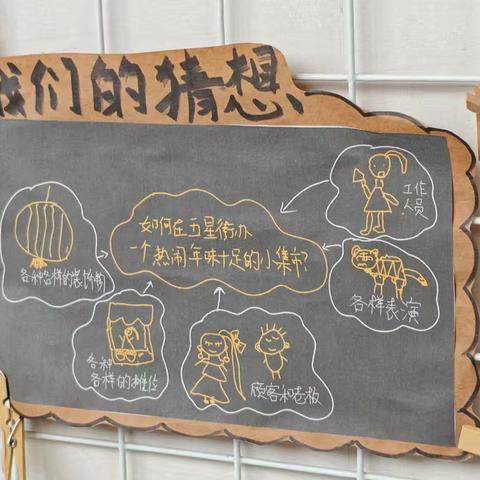 我们的猜想
如何在五星街办
一个热闹年味十足的小集市?
工作
人员
各种各样的装饰物
各样表演
各种
各样的摊位
顾客和老板